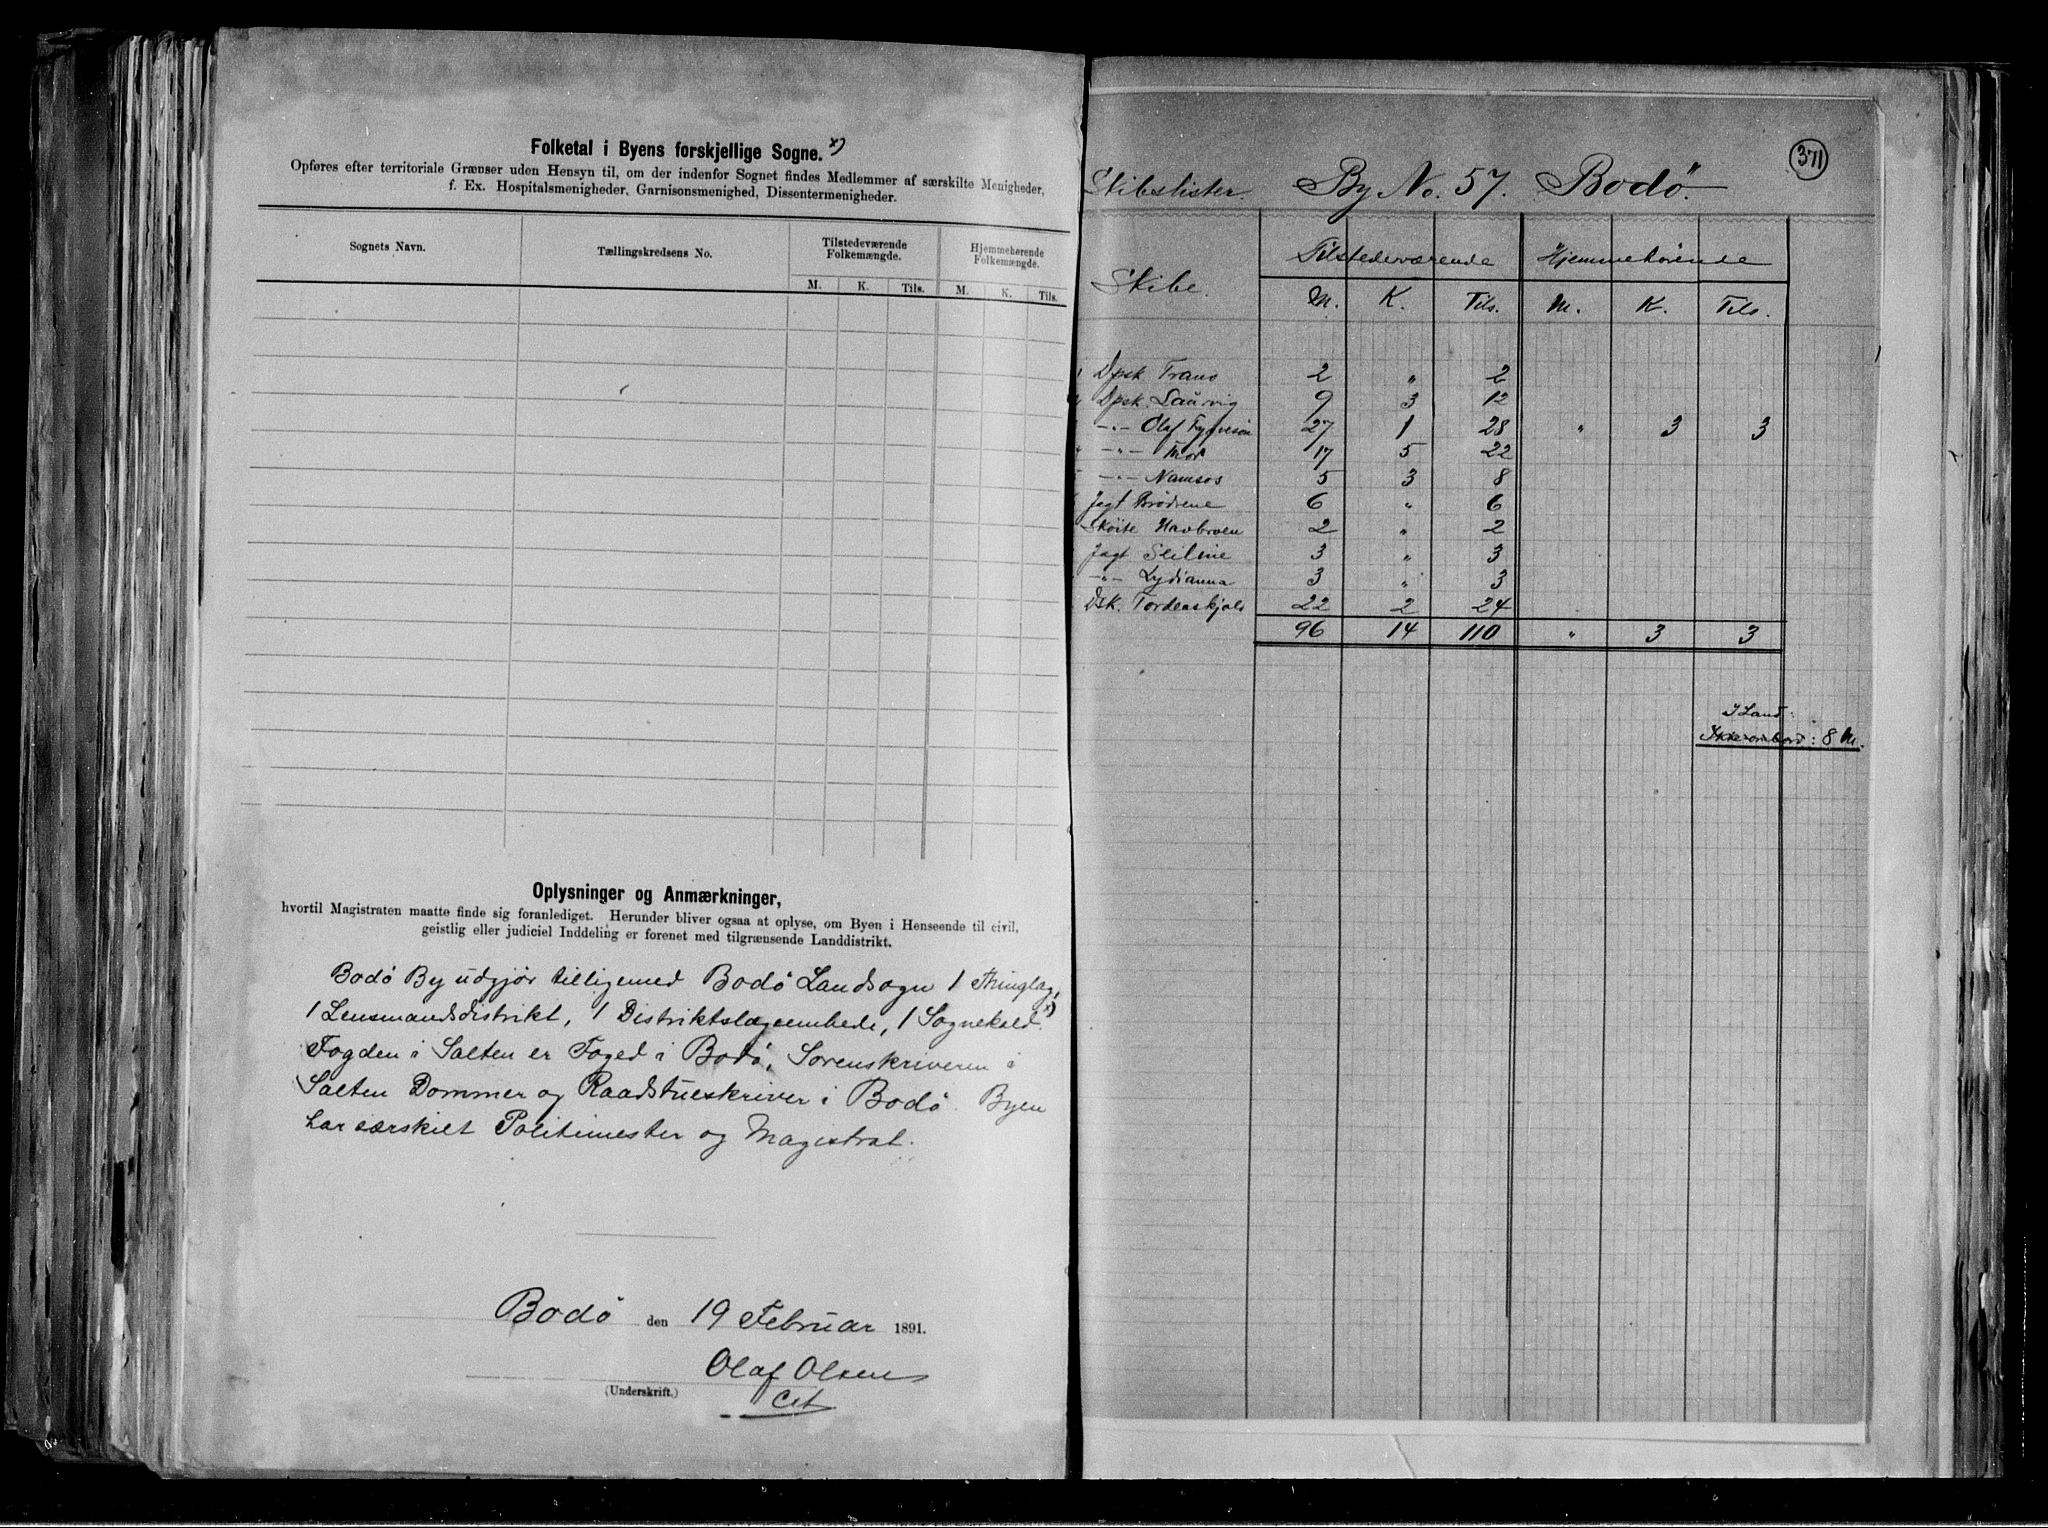 Folketal i Byens forskjellige Sogne. x)
Opføres efter territoriale Grænser uden Hensyn til, om der indenfor Sognet findes Medlemmer af særskilte Menigheder,
f. Ex. Hospitalsmenigheder, Garnisonsmenighed, Dissentermenigheder.
Sognets Navn. Tællingskredsens No. Tilstedeværende Folkemængde. Hjemmehørende Folkemængde.
M. K. Tils. M. K. Tils.
Oplysninger og Anmærkninger,
hvortil Magistraten maatte finde sig foranlediget. Herunder bliver ogsaa at oplyse, om Byen i Henseende til civil,
geistlig eller judiciel Inddeling er forenet med tilgrænsende Landdistrikt.
Bodö By udgjør tilligemed Bodö Landsogn 1 Thinglag,
1 Lensmandsdistrikt, 1 Distriktslægeembede, 1 Sognekald. x)
Fogden i Salten er Foged i Bodö, Sorenskriveren i
Salten Dommer og Raadstueskriver i Bodö. Byen
har særskilt Politimester og Magistrat.
Bodö den 19 Februar 1891.
Olaf Olsen
(Underskrift.)
Cst
371
Skibslister. By No. 57. Bodö.
Skibe. Tilstedeværende Hjemmehörende
M. K. Tils. M. K. Tils.
Dpsk. Trans 2 " 2
Dpsk. Laurvig 9 3 12
-"- Olaf Tygveson 27 1 28 " 3 3
-"- Mor 17 5 22
-"- Namsos 5 3 8
Jagt Brödrene 6 " 6
Sköite Havbroen 2 " 2
Jagt Seline 3 " 3
-"- Lydianna 3 " 3
Dsk. Tordenskjold 22 2 24
96 14 110 " 3 3
I Land:
Ikke ombord: 8 M.